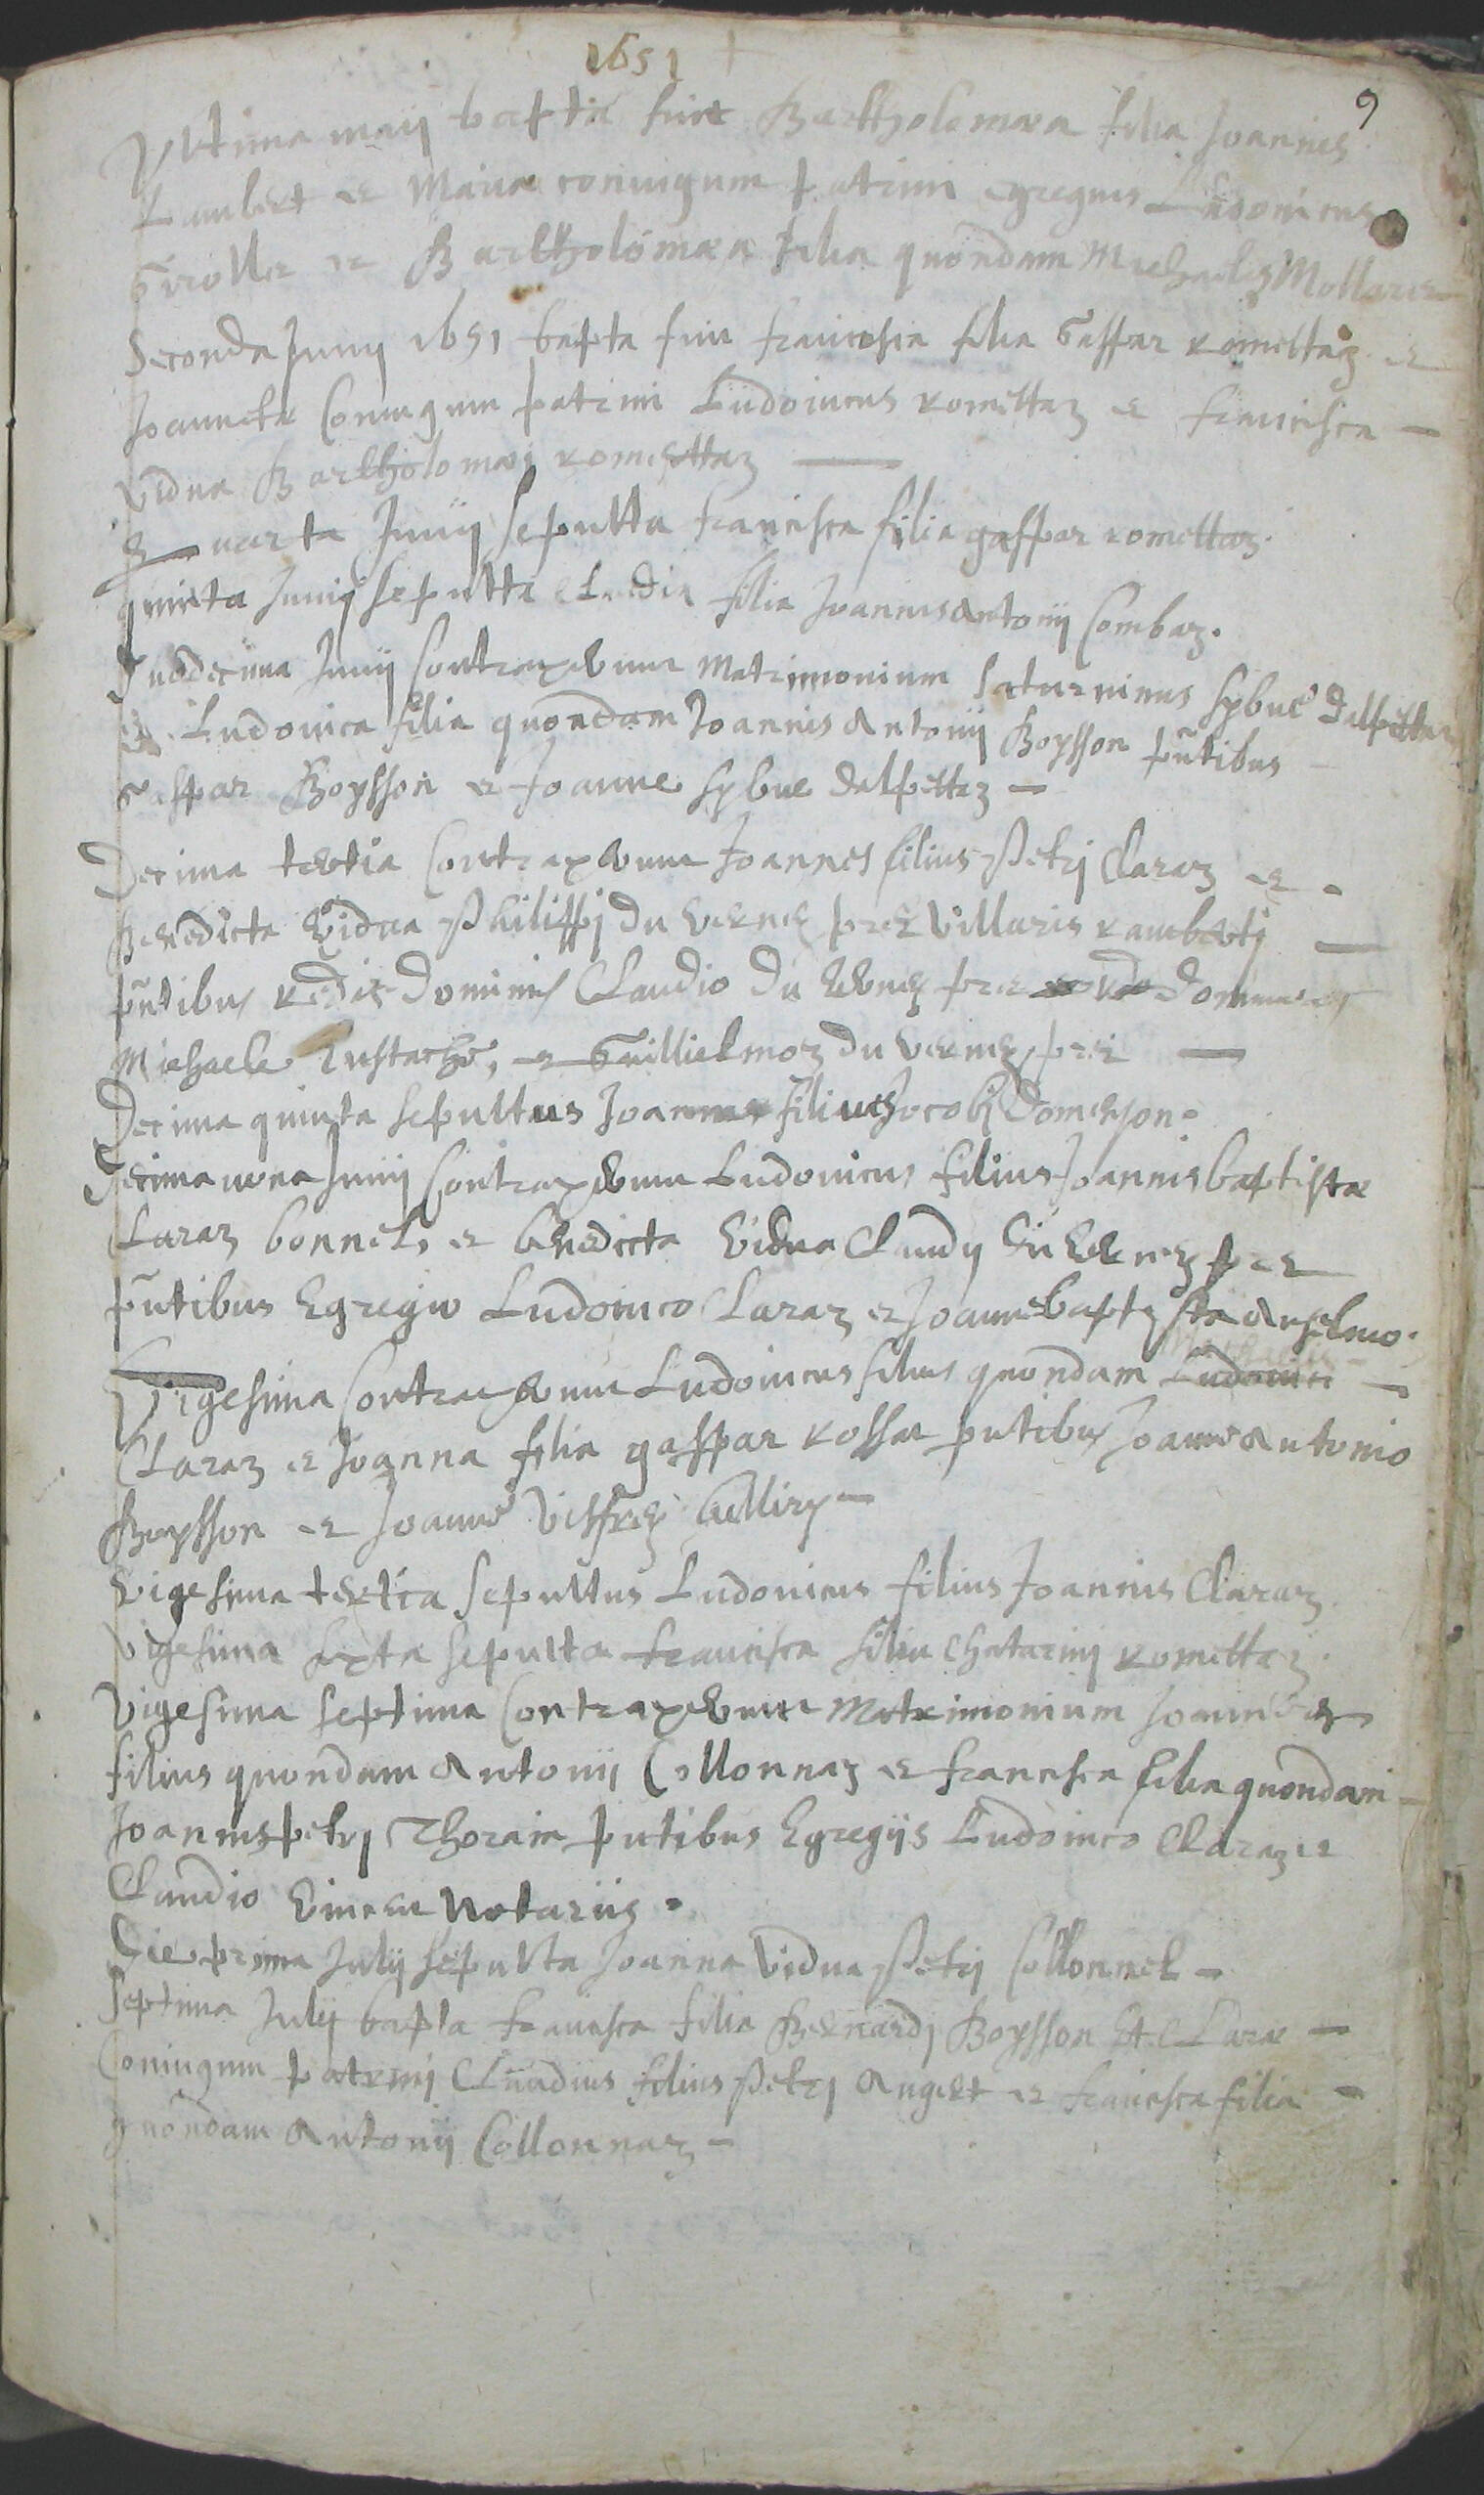 1651 +
9
Vltima maij baptā fuit Bartholomæa filia Joannis
Lambert et Mariæ coniugum patrini egregius Ludouicus
Grollier et Bartholomæa filia quondam Michaelis Mollaret
Seconda Junij 1651 bapta fuit francisca filia Gaspar Romettaz et
Joannetæ Coniugum patrini Ludouicus Romettaz et francisca
Vidua Bartholomæi Romettaz
Quarta Junij sepulta francisca filia gaspar romettaz.
quinta Junij sepulta Claudia filia Joannis Antonij Combaz.
Duodecima Junij Contraxerunt Matrimonium Saturninus Sybue dalpettaz
et Ludouica filia quondam Joannis Antonij Boysson pñtibus
Gaspar Boysson et Joanne Sybue dalpettaz
Decima tertia Contraxerunt Joannes filius Petrj Claraz et
Benedicta Vidua Philippj du Vernej prez Villaris Rambertj
pñtibus Rdis Dominis Claudio du Vernej prez Domino
Michaele Eustache, et Guillielmoz du Vernej prez
Decima quinta sepultus Joannes filius Jocobj Domenson.
Decima nona Junij Contraxerunt Ludouicus filius Joannis baptistæ
Claraz bonnel, et benedicta Vidua Claudij du Vernej prez
pñtibus Egregio Ludouico Claraz et Joanne baptysta Anselmo.
Vigesima Contraxerunt Ludouicus filius quondam Ludouici
Claraz et Joanna filia gaspar Rosset pntibus Joanne Antonio
Boysson et Joanne
Vigesima tertia sepultus Ludouicus filius Joannis Claraz.
Vigesima sexta sepulta francisca filia Chatarinj Romettaz.
Vigesima septima Contraxerunt Matrimonium Joannes
filius quondam Antonij Collonnaz et francisca filia quondam
Joannis petrj Thorain pntibus Egregijs Ludouico Claraz et
Claudio Vincent Notarijs.
Die prima Julij sepulta Joanna Vidua Petrj Collonnel
Septima Julij bapta francisca filia Bernardj Boysson Et Claræ
Coniugum patrinj Claudius filius Petrj Angert et francisca filia
quondam Antonij Collonnaz